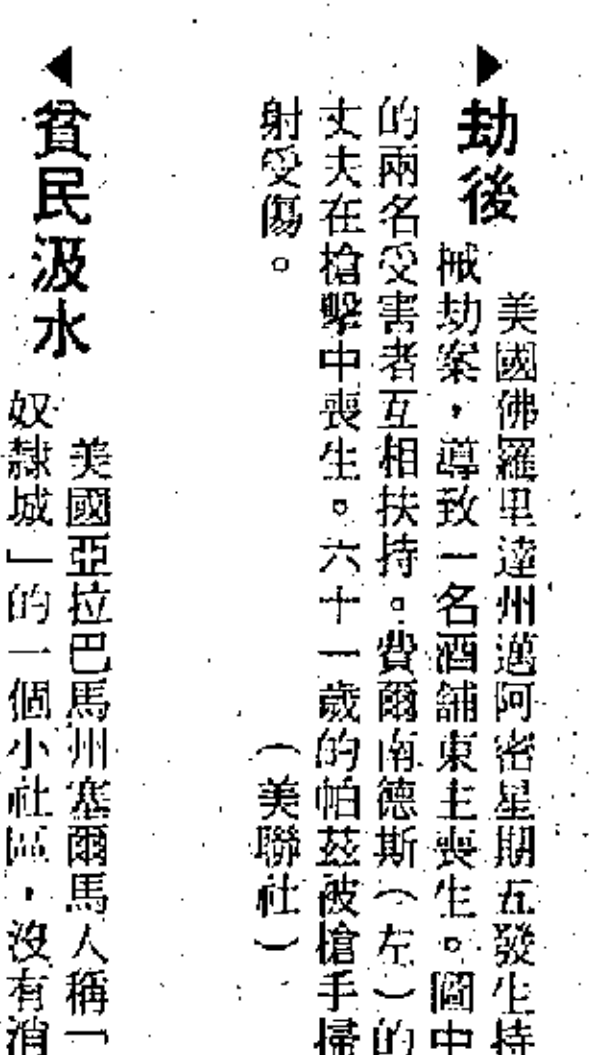 ▶劫後
美國佛羅里達州邁阿密星期五發生持
械劫案,導致一名酒舖東主喪生。圖中
的兩名受害者互相扶持。費爾南德斯(左)的
丈夫在槍擊中喪生。六十一歲的帕茲被槍手掃
射受傷。
(美聯社)
◀貧民汲水
美國亞拉巴馬州塞爾馬人稱「
奴隸城」的一個小社區,沒有消